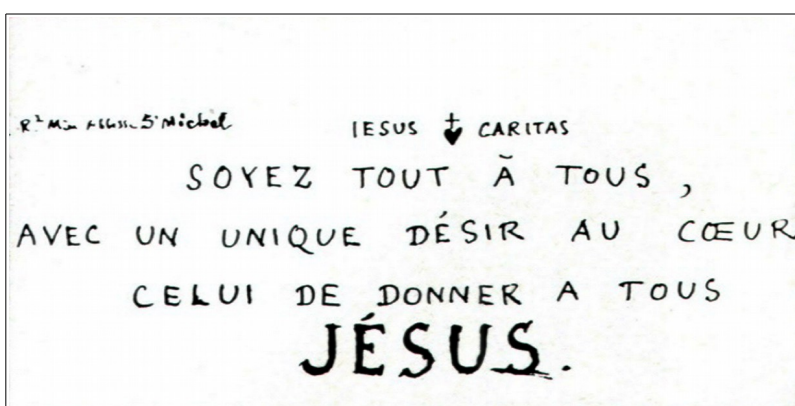 St Michel
IESUS CARITAS
SOYEZ TOUT À TOUS,
AVEC UN UNIQUE DÉSIR AU CŒUR
CELUI DE DONNER A TOUS
JÉSUS.